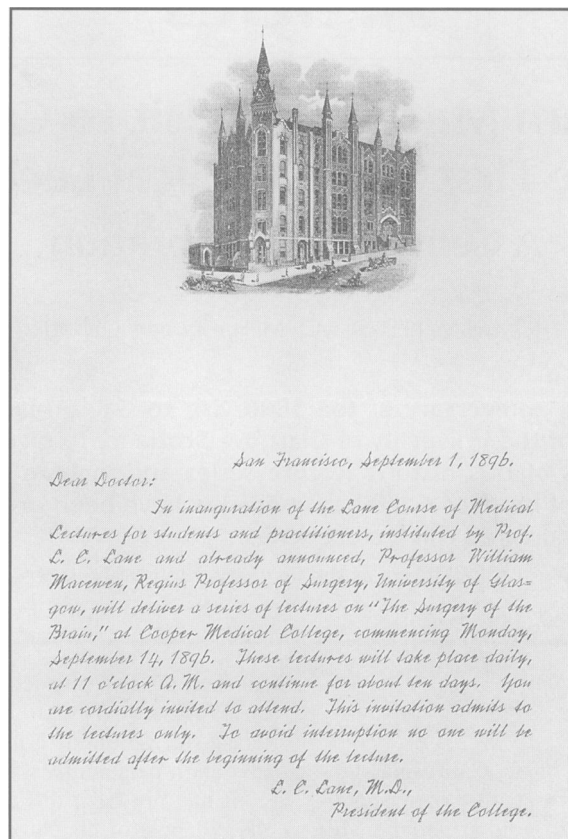 San Francisco, September 1, 1896.
Dear Doctor:
In inauguration of the Lane Course of Medical
Lectures for students and practitioners, instituted by Prof.
L. C. Lane and already announced, Professor William
Macewen, Regius Professor of Surgery, University of Glas=
gow, will deliver a series of lectures on "The Surgery of the
Brain," at Cooper Medical College, commencing Monday,
September 14, 1896. These lectures will take place daily,
at 11 o'clock A. M. and continue for about ten days. You
are cordially invited to attend. This invitation admits to
the lectures only. To avoid interruption no one will be
admitted after the beginning of the lecture.
L. C. Lane, M.D.,
President of the College.